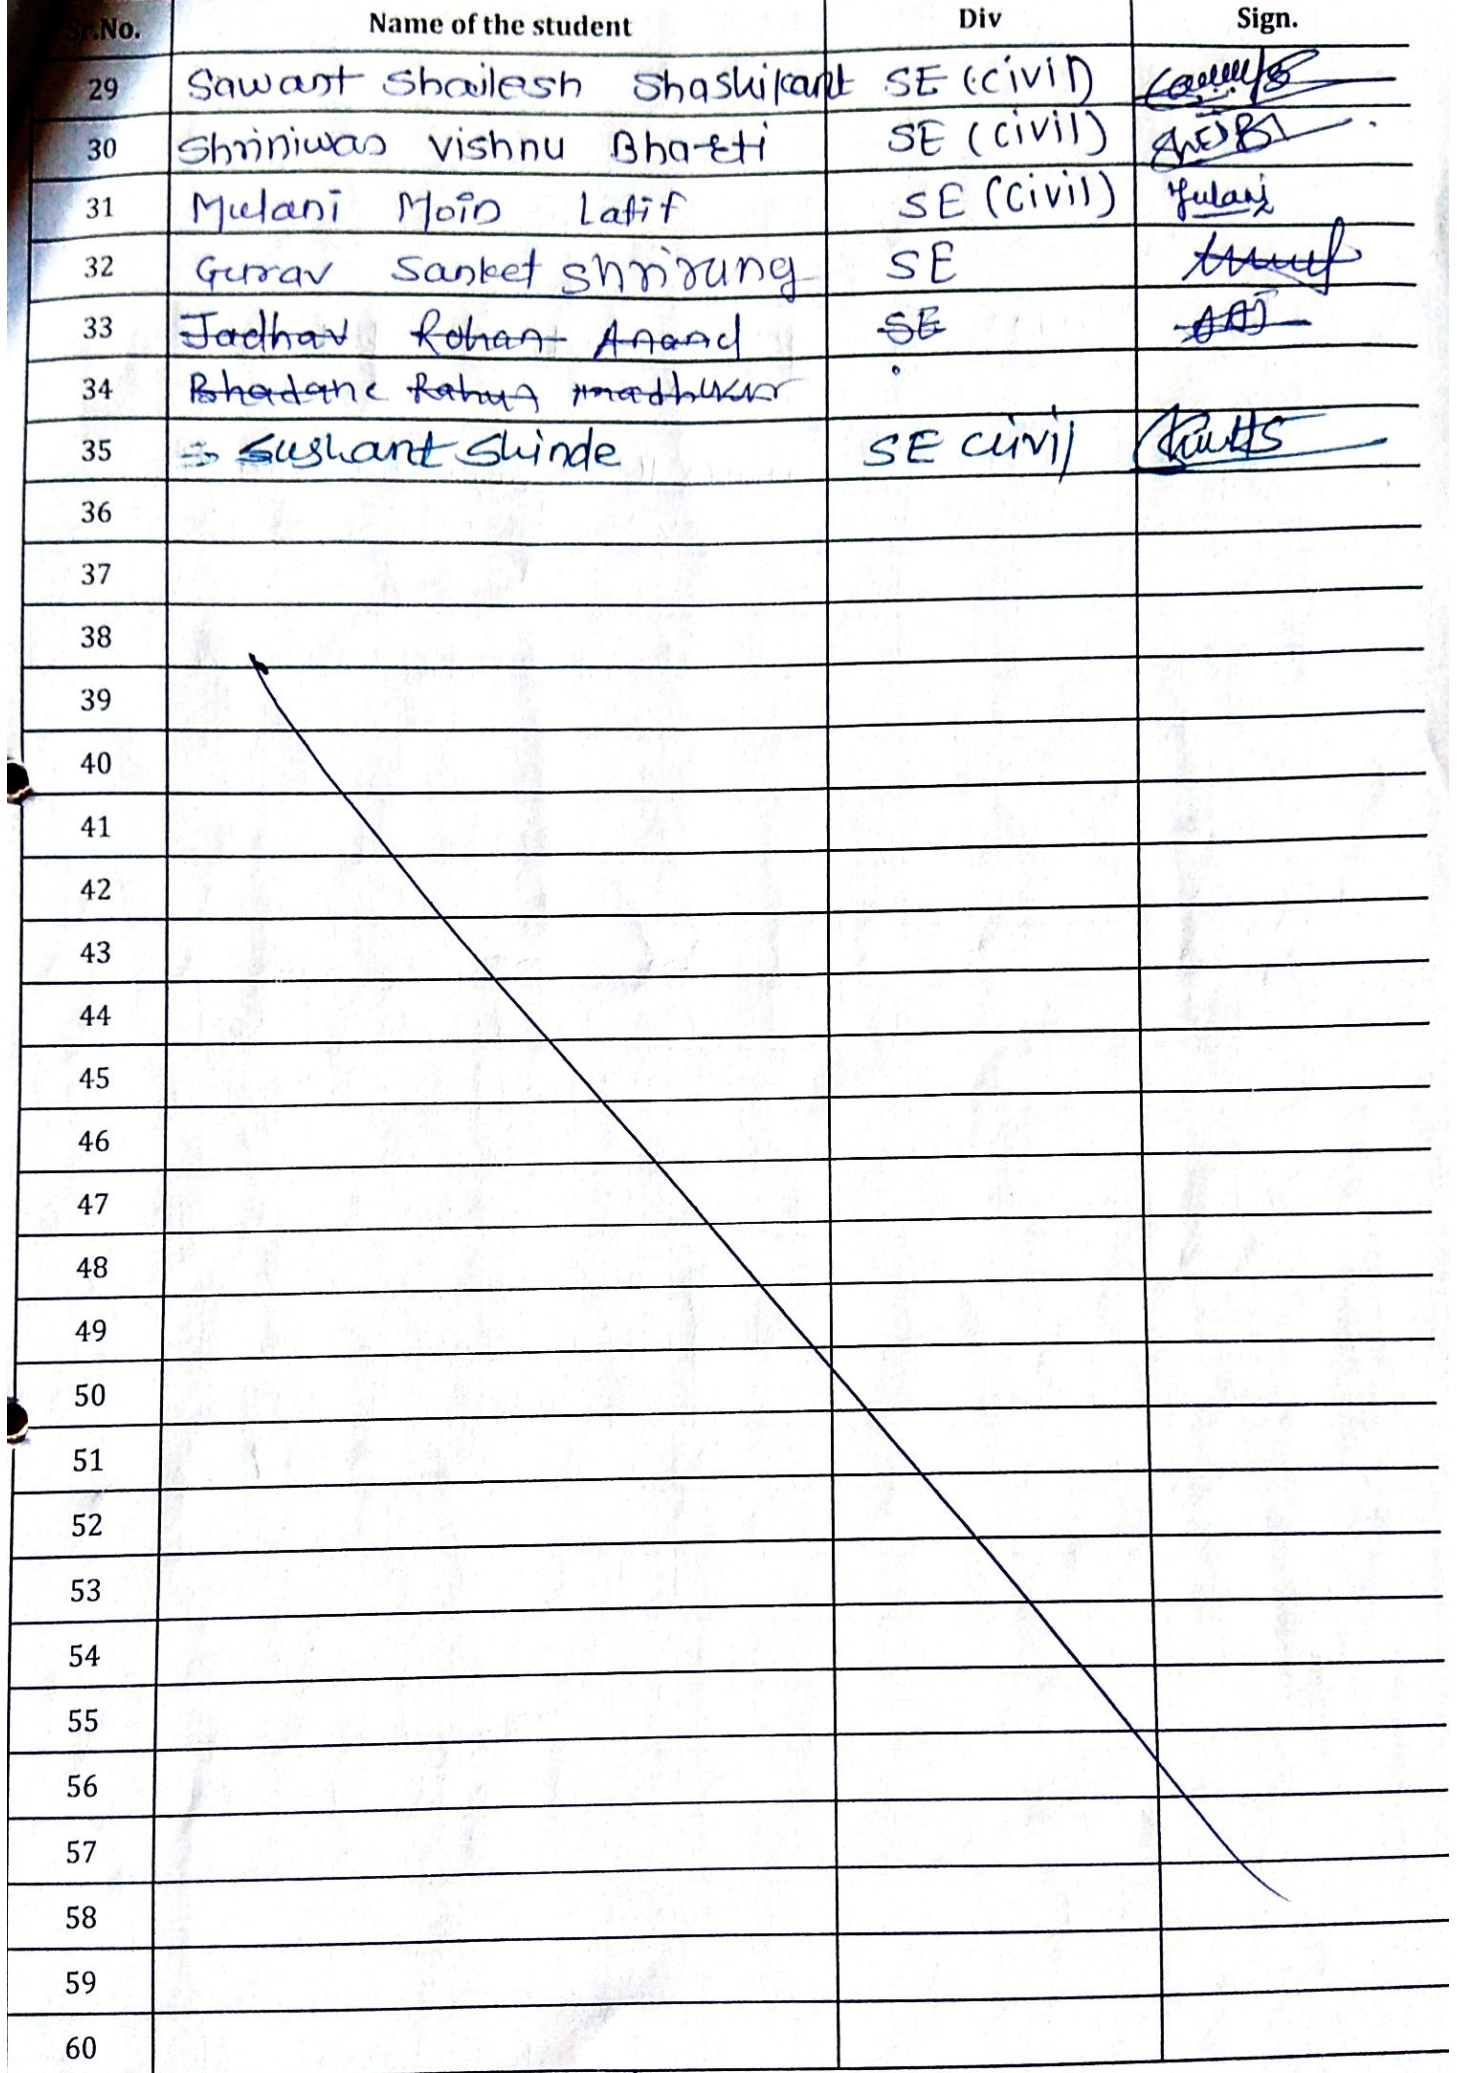 Sr.No. Name of the student Div Sign.
29 Sawant Shailesh Shashikant SE (Civil)
30 Shriniwas Vishnu Bharti SE (Civil)
31 Mulani Moin Latif SE (Civil) Mulani
32 Gurav Sanket Shrirung SE
33 Jadhav Rohan Anand SE
34 Bhadane Rahul madhukar
35 Sushant Shinde SE Civil
36
37
38
39
40
41
42
43
44
45
46
47
48
49
50
51
52
53
54
55
56
57
58
59
60